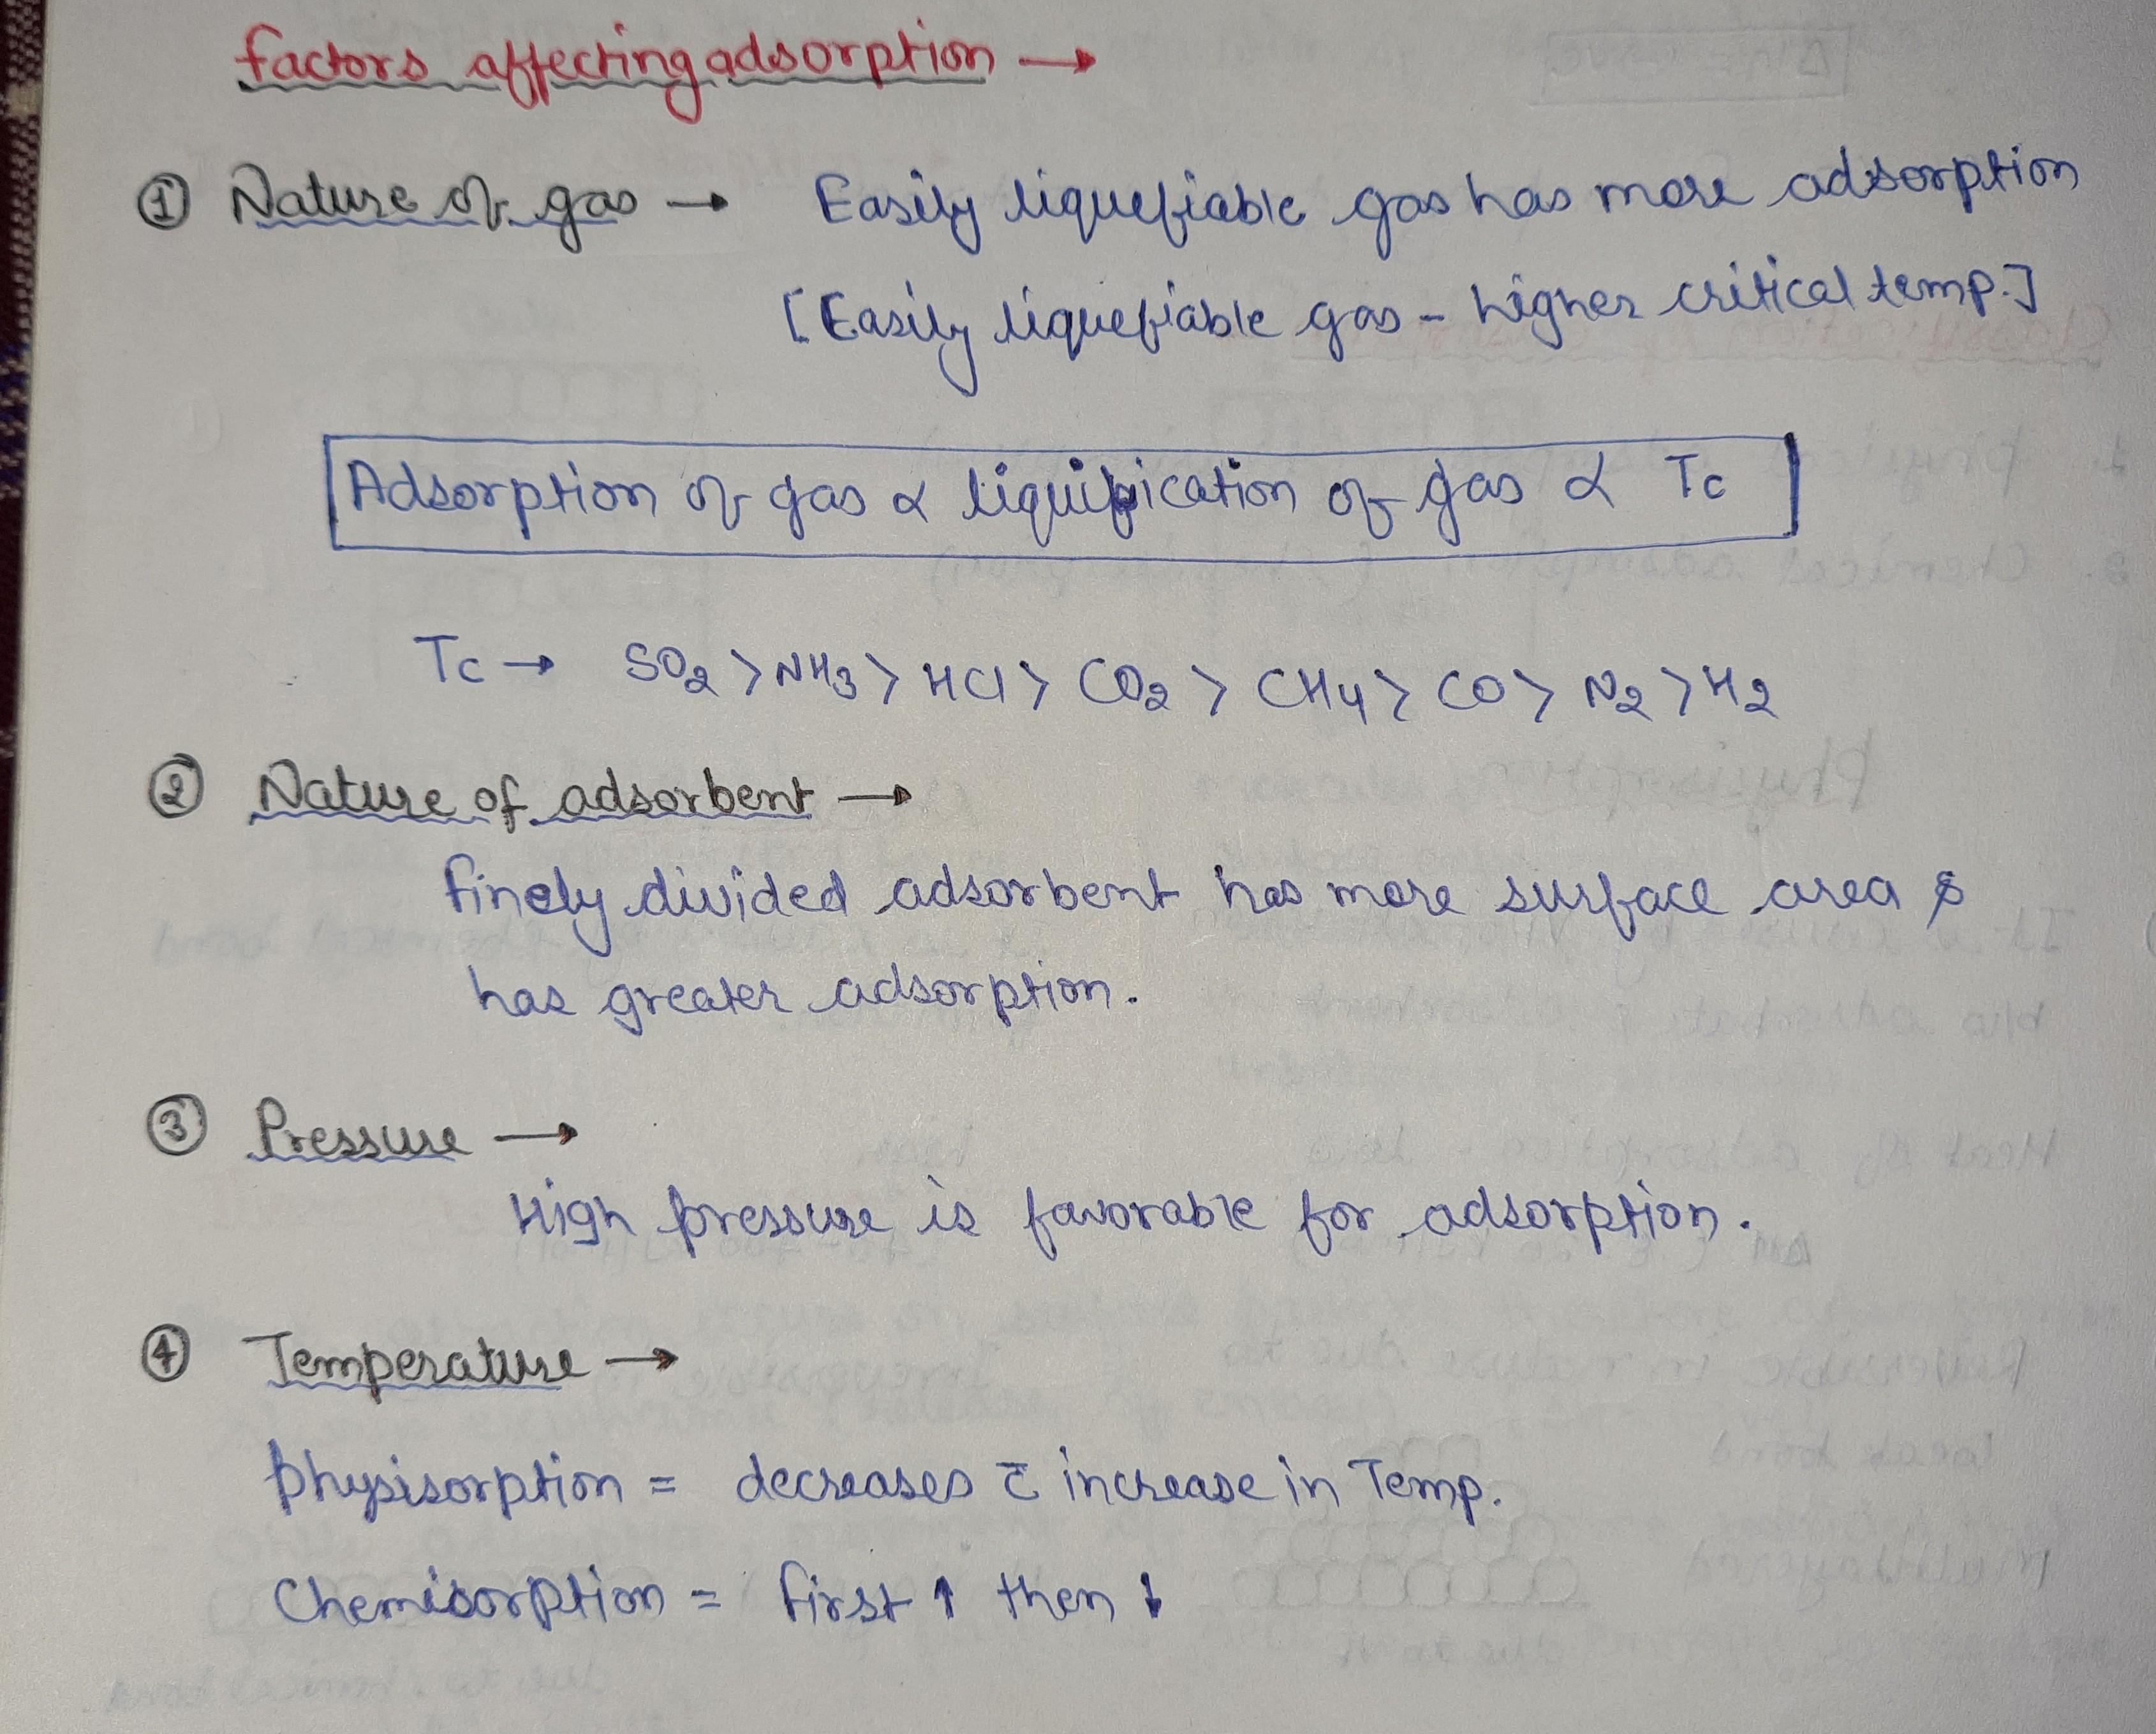 Factors affecting adsorption →
① Nature of gas → Easily liquefiable gas has more adsorption
[Easily liquefiable gas - higher critical temp.]
Adsorption of gas ∝ liquification of gas ∝ Tc
Tc → SO₂ > NH₃ > HCl > CO₂ > CH₄ > CO > N₂ > H₂
② Nature of adsorbent →
Finely divided adsorbent has more surface area &
has greater adsorption.
③ Pressure →
High pressure is favorable for adsorption.
④ Temperature →
Physisorption = decreases c̄ increase in Temp.
Chemisorption = first ↑ then ↓